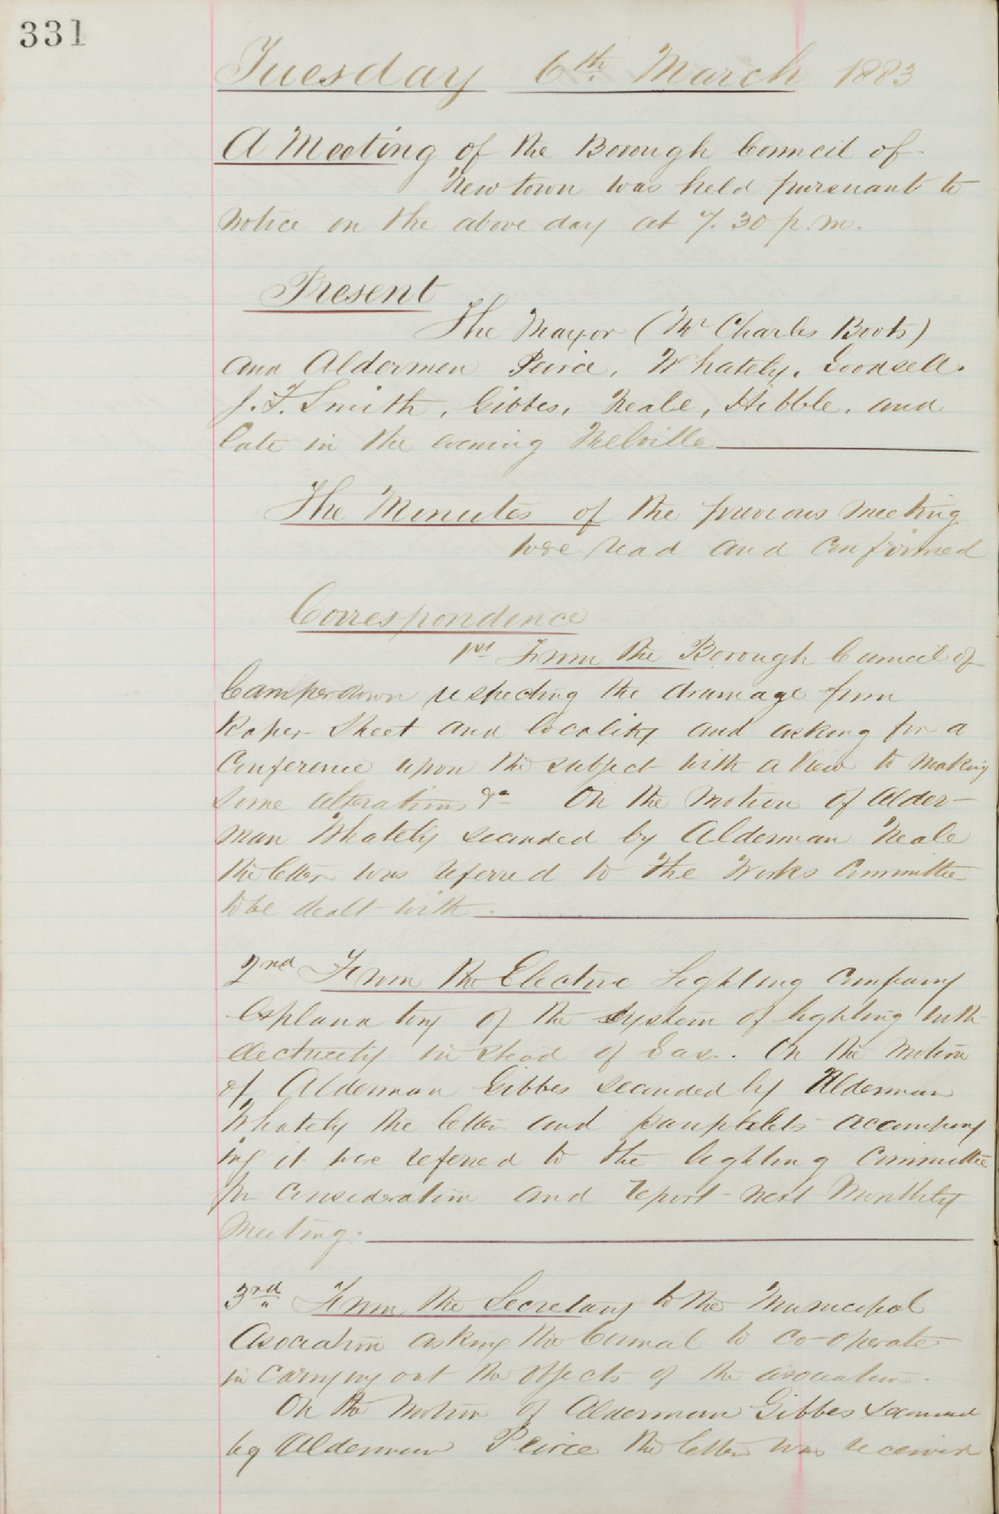 331
Tuesday 6th March 1883
A Meeting of the Borough Council of
Newtown was held pursuant to
notice on the above day at 7.30 p.m.
Present
The Mayor (Mr Charles Boots)
and Aldermen Peirce, Whately, Goodsell.
J. F. Smith, Gibbes, Neale, Hibble, and
late in the evening Melville
The Minutes of the previous meeting
were read and confirmed
Correspondence
1st From the Borough Council of
Camperdown respecting the drainage from
Roper Street and locality and asking for a
Conference upon the subject with a view to making
some alterations &c On the Motion of Alder-
man Whately seconded by Alderman Neale
the letter was referred to the Works Committee
to be dealt with.
2nd From the Electric Lighting Company
explanatory of the system of lighting with
electricity in stead of Gas. On the Motion
of Alderman Gibbes seconded by Alderman
Whately the letter and pamphlets accompany
ing it were referred to the lighting Committee
for consideration and report next Monthly
Meeting.
3rd From the Secretary to the Municipal
Asociation asking the Council to co-operate
in carrying out the objects of the asociation.
On the Motion of Alderman Gibbes seconded
by Alderman Peirce the letter was received